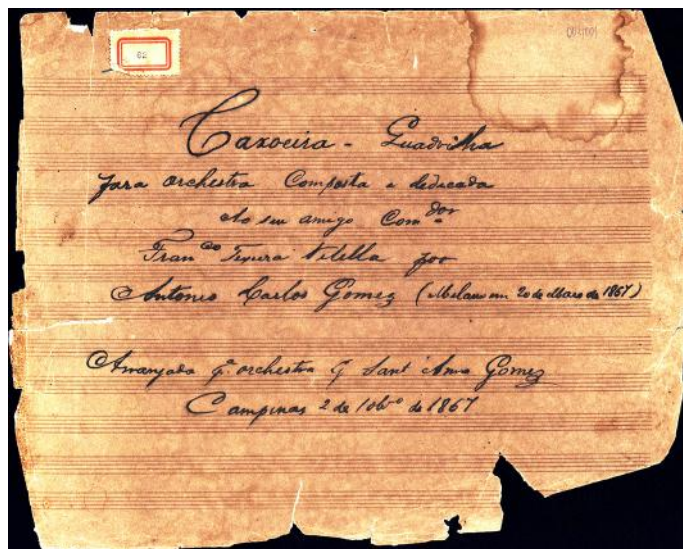 62
Caxoeira - Quadrilha
para orchestra Composta e dedicada
Ao seu amigo Com.dor
Fran.co Texera Vilella por
Antonio Carlos Gomez (Milano em 20 de Março de 1867)
Arranjada p.a orchestra p. Sant'Anna Gomez
Campinas 2 de 10br.o de 1867